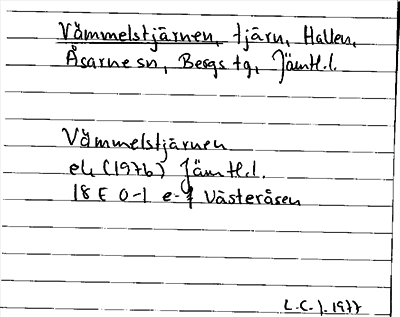 Våmmelstjärnen, tjärn, Hallen,
Åsarne sn, Bergs tg, Jämtl.l.
Våmmelstjärnen
ek (1976) Jämtl.l.
18 E 0-1 e-f Västeråsen
L.C.J. 1977